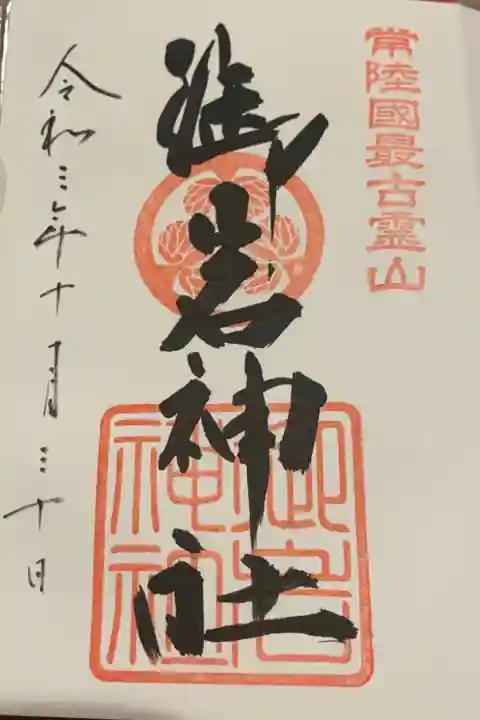 常陸國最古霊山
御岩神社
御岩神社
令和三年十月三十日